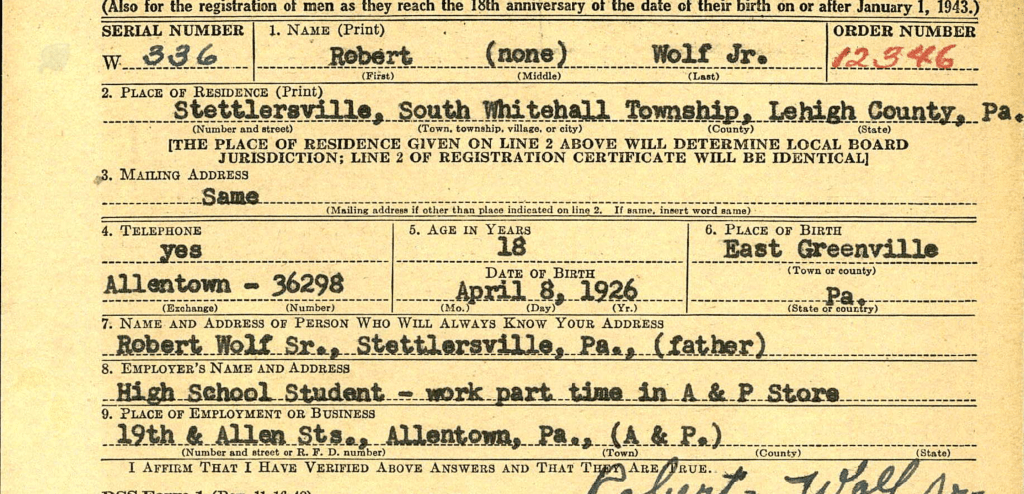 (Also for the registration of men as they reach the 18th anniversary of the date of their birth on or after January 1, 1943.)
SERIAL NUMBER 1. NAME (Print) ORDER NUMBER
W 336 Robert (none) Wolf Jr. 12346
(First) (Middle) (Last)
2. PLACE OF RESIDENCE (Print)
Stettlersville, South Whitehall Township, Lehigh County, Pa.
(Number and street) (Town, township, village, or city) (County) (State)
[THE PLACE OF RESIDENCE GIVEN ON LINE 2 ABOVE WILL DETERMINE LOCAL BOARD
JURISDICTION; LINE 2 OF REGISTRATION CERTIFICATE WILL BE IDENTICAL]
3. MAILING ADDRESS
Same
(Mailing address if other than place indicated on line 2. If same, insert word same)
4. TELEPHONE 5. AGE IN YEARS 6. PLACE OF BIRTH
yes 18 East Greenville
DATE OF BIRTH (Town or county)
Allentown - 36298 April 8, 1926 Pa.
(Exchange) (Number) (Mo.) (Day) (Yr.) (State or country)
7. NAME AND ADDRESS OF PERSON WHO WILL ALWAYS KNOW YOUR ADDRESS
Robert Wolf Sr., Stettlersville, Pa., (father)
8. EMPLOYER'S NAME AND ADDRESS
High School Student - work part time in A & P Store
9. PLACE OF EMPLOYMENT OR BUSINESS
19th & Allen Sts., Allentown, Pa., (A & P.)
(Number and street or R. F. D. number) (Town) (County) (State)
I AFFIRM THAT I HAVE VERIFIED ABOVE ANSWERS AND THAT THEY ARE TRUE.
Robert Wolf Jr.